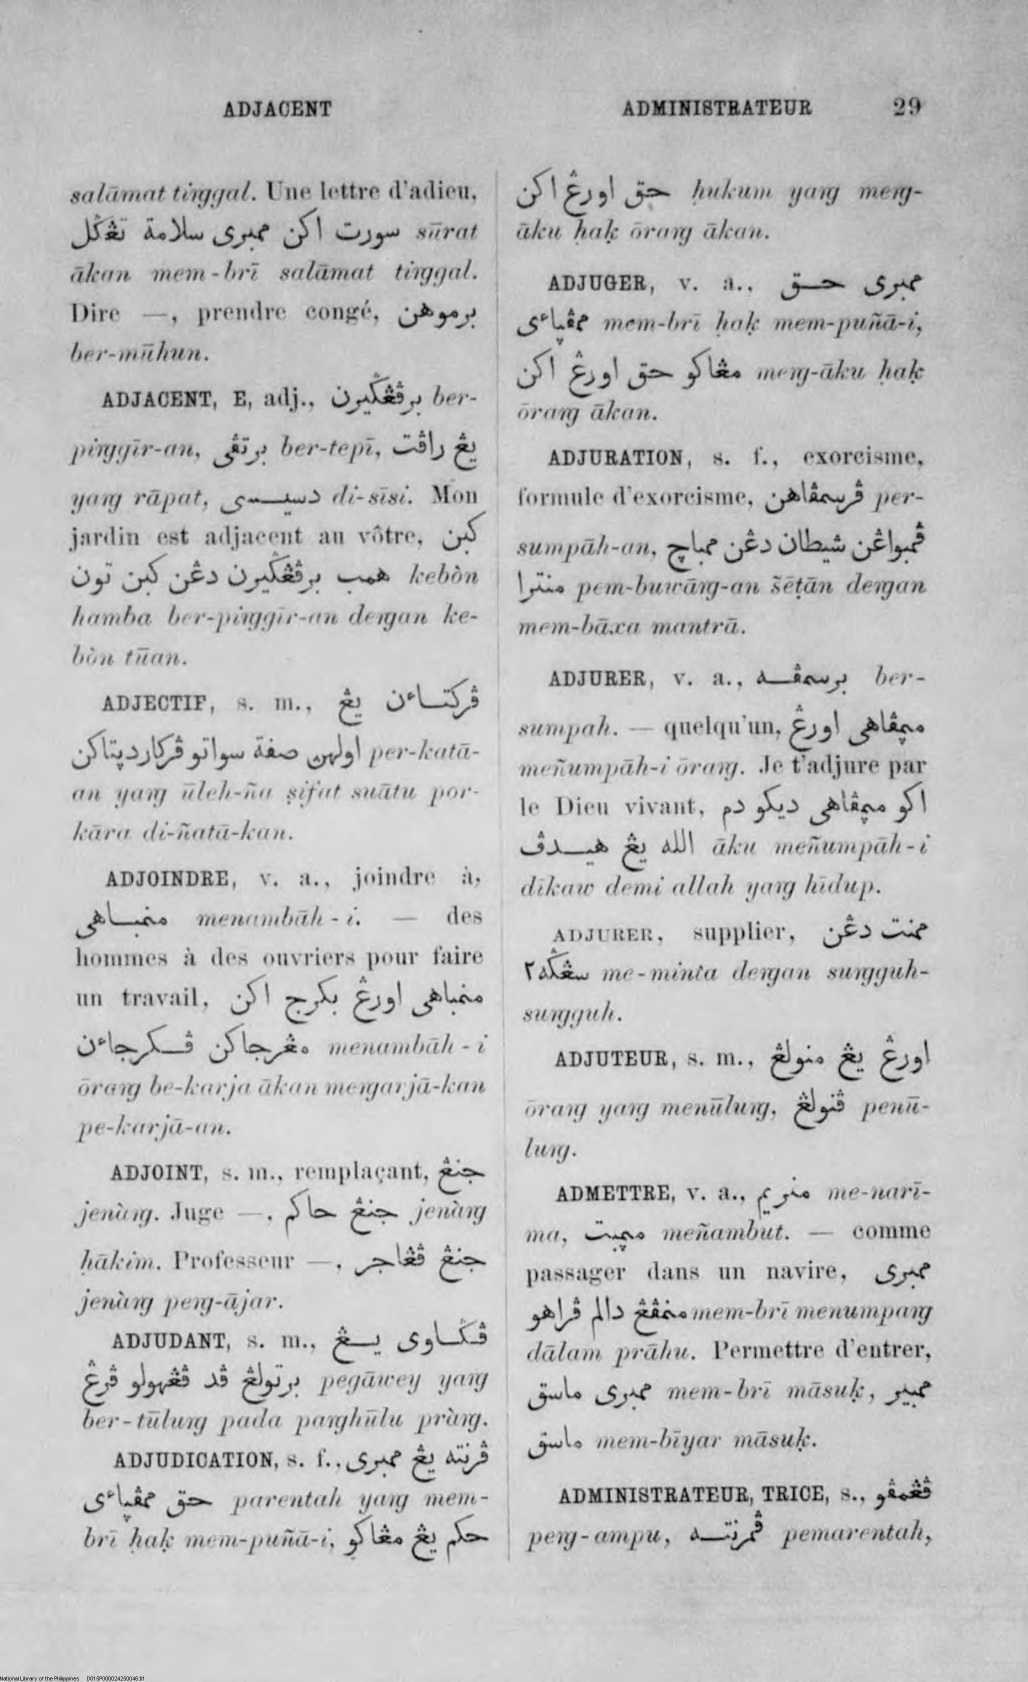 ADJACENT
ADMINISTRATEUR 29
salāmat tiṅggal. Une lettre d'adieu,
سورت اكن ممبرى سلامة تڠݢل sūrat
ākan mem-brī salāmat tiṅggal.
Dire —, prendre congé, برموهن
ber-mūhun.
ADJACENT, E, adj., برڤڠݢيرن ber-
piṅggīr-an, برتڤى ber-tepī, يڠ راڤت
yaṅg rāpat, دسيسى di-sīsi. Mon
jardin est adjacent au vôtre, كبن
همب برڤڠݢيرن دڠن كبن تون kebòn
hamba ber-piṅggīr-an deṅgan ke-
bòn tūan.
ADJECTIF, s. m., ڤركتاءن يڠ
اولهن صفة سواتو ڤركاردڽتاكن per-katā-
an yaṅg ūleh-ña ṣifat suātu por-
kāra di-ñatā-kan.
ADJOINDRE, v. a., joindre à,
منمباهى menambāh-i. — des
hommes à des ouvriers pour faire
un travail, منمباهى اورڠ بكرج اكن
مڠرجاكن ڤكرجاءن menambāh-i
ōraṅg be-karja ākan meṅgarjā-kan
pe-karjā-an.
ADJOINT, s. m., remplaçant, جنڠ
jenàṅg. Juge —, جنڠ حاكم jenàṅg
ḥākim. Professeur —, جنڠ ڤڠاجر
jenàṅg peṅg-ājar.
ADJUDANT, s. m., ڤݢاوى يڠ
برتولڠ ڤد ڤڠهولو ڤرڠ pegāwey yaṅg
ber-tūluṅg pada paṅghūlu pràṅg.
ADJUDICATION, s. f., ڤرنته يڠ ممبرى
حق ممڤڽاءى parentah yaṅg mem-
brī ḥaḳ mem-puñā-i, حكم يڠ مڠاكو
حق اورڠ اكن ḥukum yaṅg meṅg-
āku ḥaḳ ōraṅg ākan.
ADJUGER, v. a., ممبرى حق
ممڤڽاءى mem-brī ḥaḳ mem-puñā-i,
مڠاكو حق اورڠ اكن meṅg-āku ḥaḳ
ōraṅg ākan.
ADJURATION, s. f., exorcisme,
formule d'exorcisme, ڤرسمڤاهن per-
sumpāh-an, ڤمبواڠن شيطان دڠن ممباچ
منترا pem-buwāṅg-an šēṭān deṅgan
mem-bāxa mantrā.
ADJURER, v. a., برسمڤه ber-
sumpah. — quelqu'un, مڽمڤاهى اورڠ
meñumpāh-i ōraṅg. Je t'adjure par
le Dieu vivant, اكو مڽمڤاهى ديكو دم
الله يڠ هيدڤ āku meñumpāh-i
dīkaw demi allah yaṅg hīdup.
ADJURER, supplier, ممنت دڠن
سڠݢه٢ me-minta deṅgan suṅgguh-
suṅgguh.
ADJUTEUR, s. m., اورڠ يڠ منولڠ
ōraṅg yaṅg menūluṅg, ڤنولڠ penū-
luṅg.
ADMETTRE, v. a., منريم me-narī-
ma, مڽمبت meñambut. — comme
passager dans un navire, ممبرى
منمڤڠ دالم ڤراهو mem-brī menumpaṅg
dālam prāhu. Permettre d'entrer,
ممبرى ماسق mem-brī māsuḳ, ممبير
ماسق mem-bīyar māsuḳ.
ADMINISTRATEUR, TRICE, s., ڤڠمڤو
peṅg-ampu, ڤمرنته pemarentah,
National Library of the Philippines